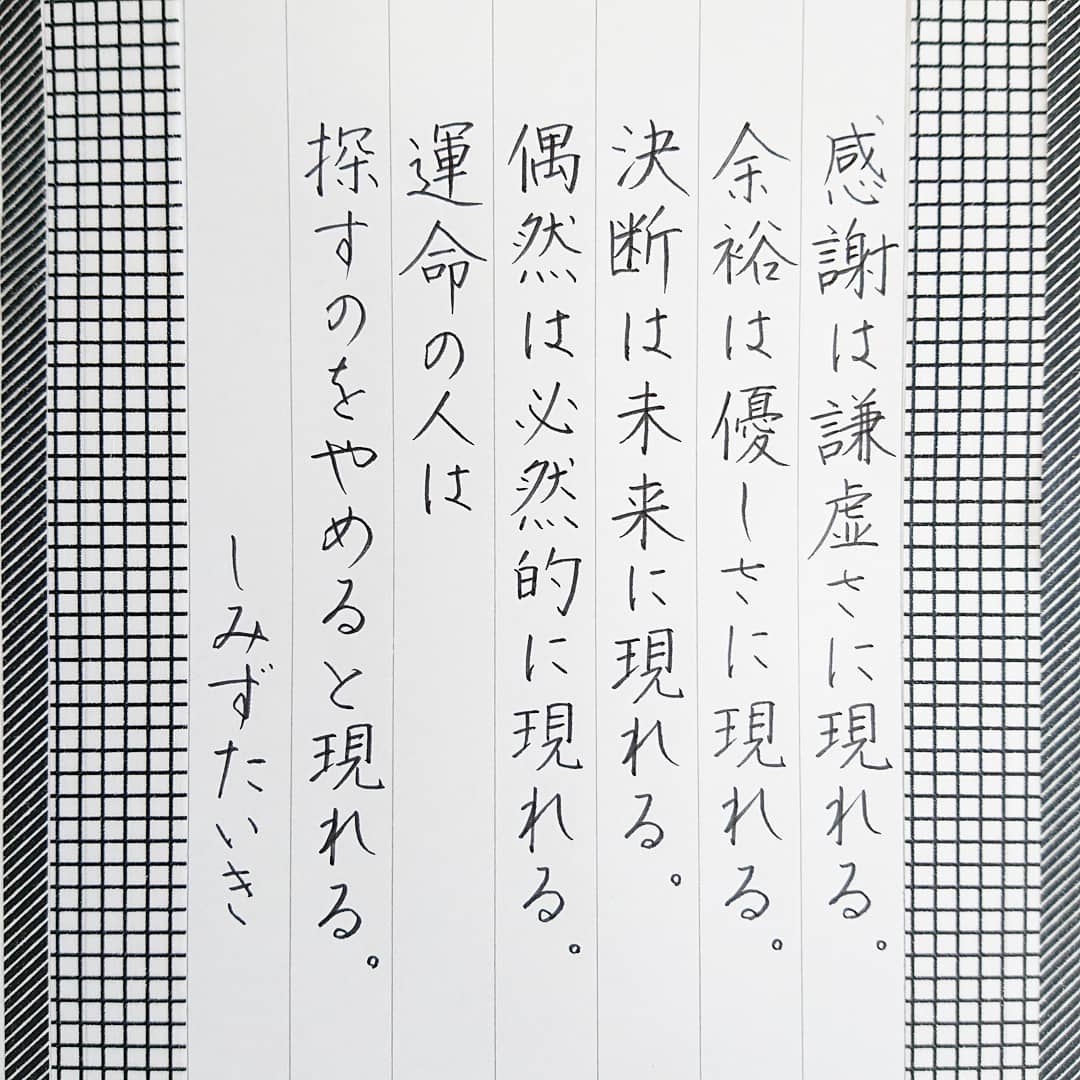 感謝は謙虚さに現れる。
余裕は優しさに現れる。
決断は未来に現れる。
偶然は必然的に現れる。
運命の人は
探すのをやめると現れる。
しみずたいき